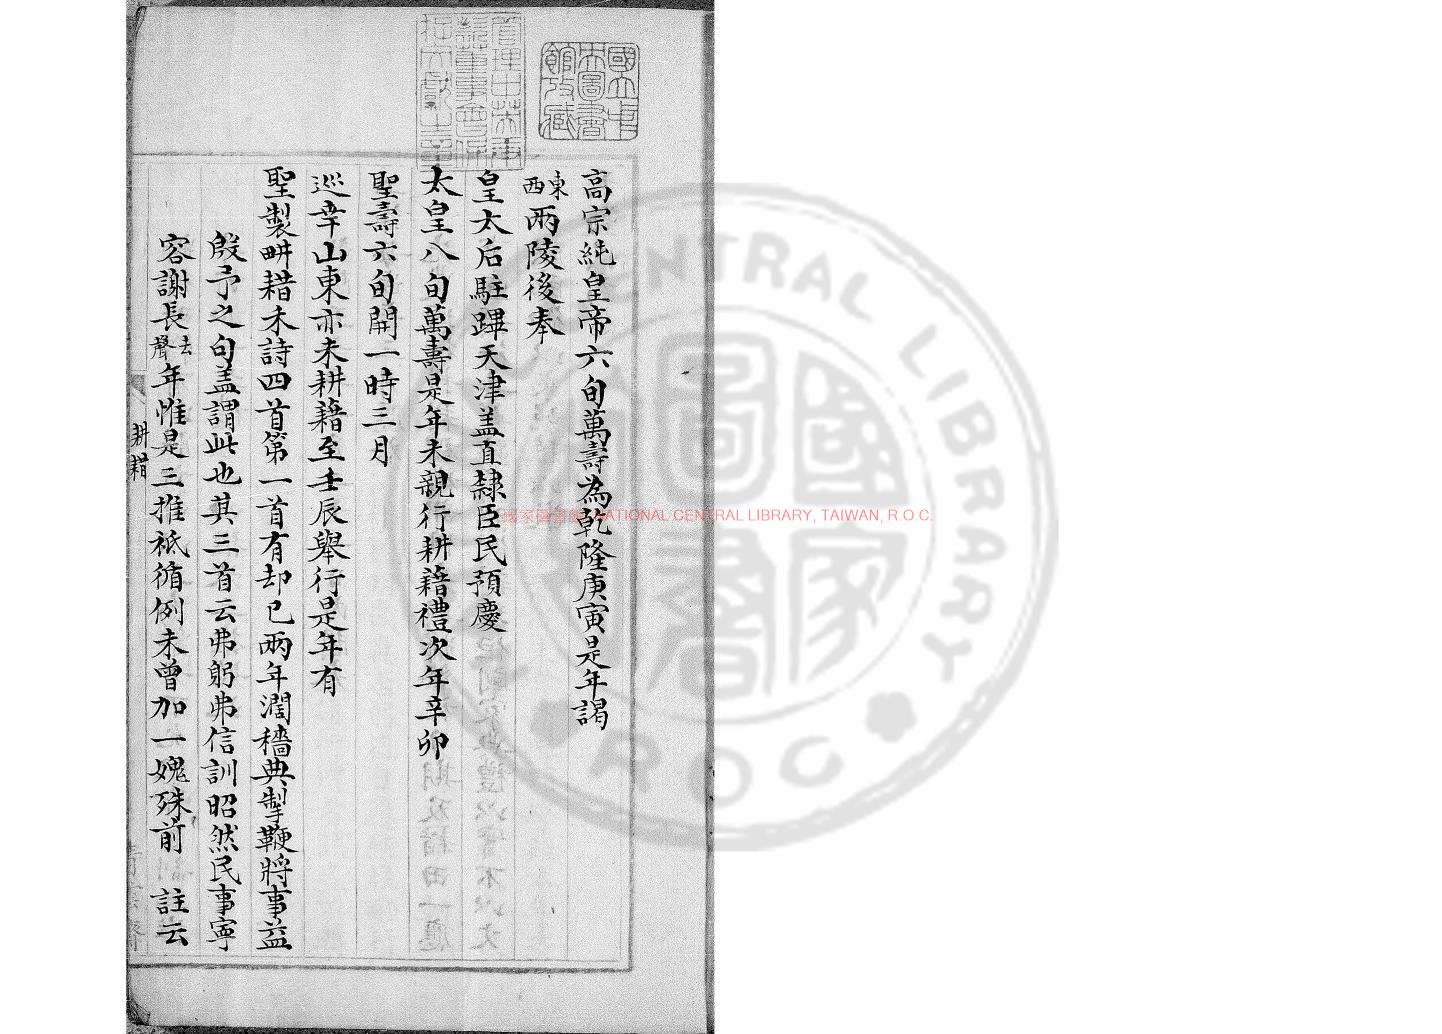 高宗純皇帝六旬萬壽為乾隆庚寅是年謁
東西兩陵後奉
皇太后駐蹕天津盖直隸臣民預慶
太皇八旬萬壽是年未親行耕藉禮次年辛卯
聖壽六旬開一時三月
巡幸山東亦未耕藉至壬辰舉行是年有
聖製畊耤禾詩四首第一首有却已兩年濶穡典掣鞭將事益
殷予之句盖謂此也其三首云弗躬弗信訓昭然民事寧
容謝長去聲年惟是三推祇循例未曾加一媿殊前 註云
耕耤
國立中央圖書館攷藏
管理中英庚款董事會保存文獻之章
國家圖書館 NATIONAL CENTRAL LIBRARY, TAIWAN, R.O.C.
CENTRAL LIBRARY
ROC
圖書